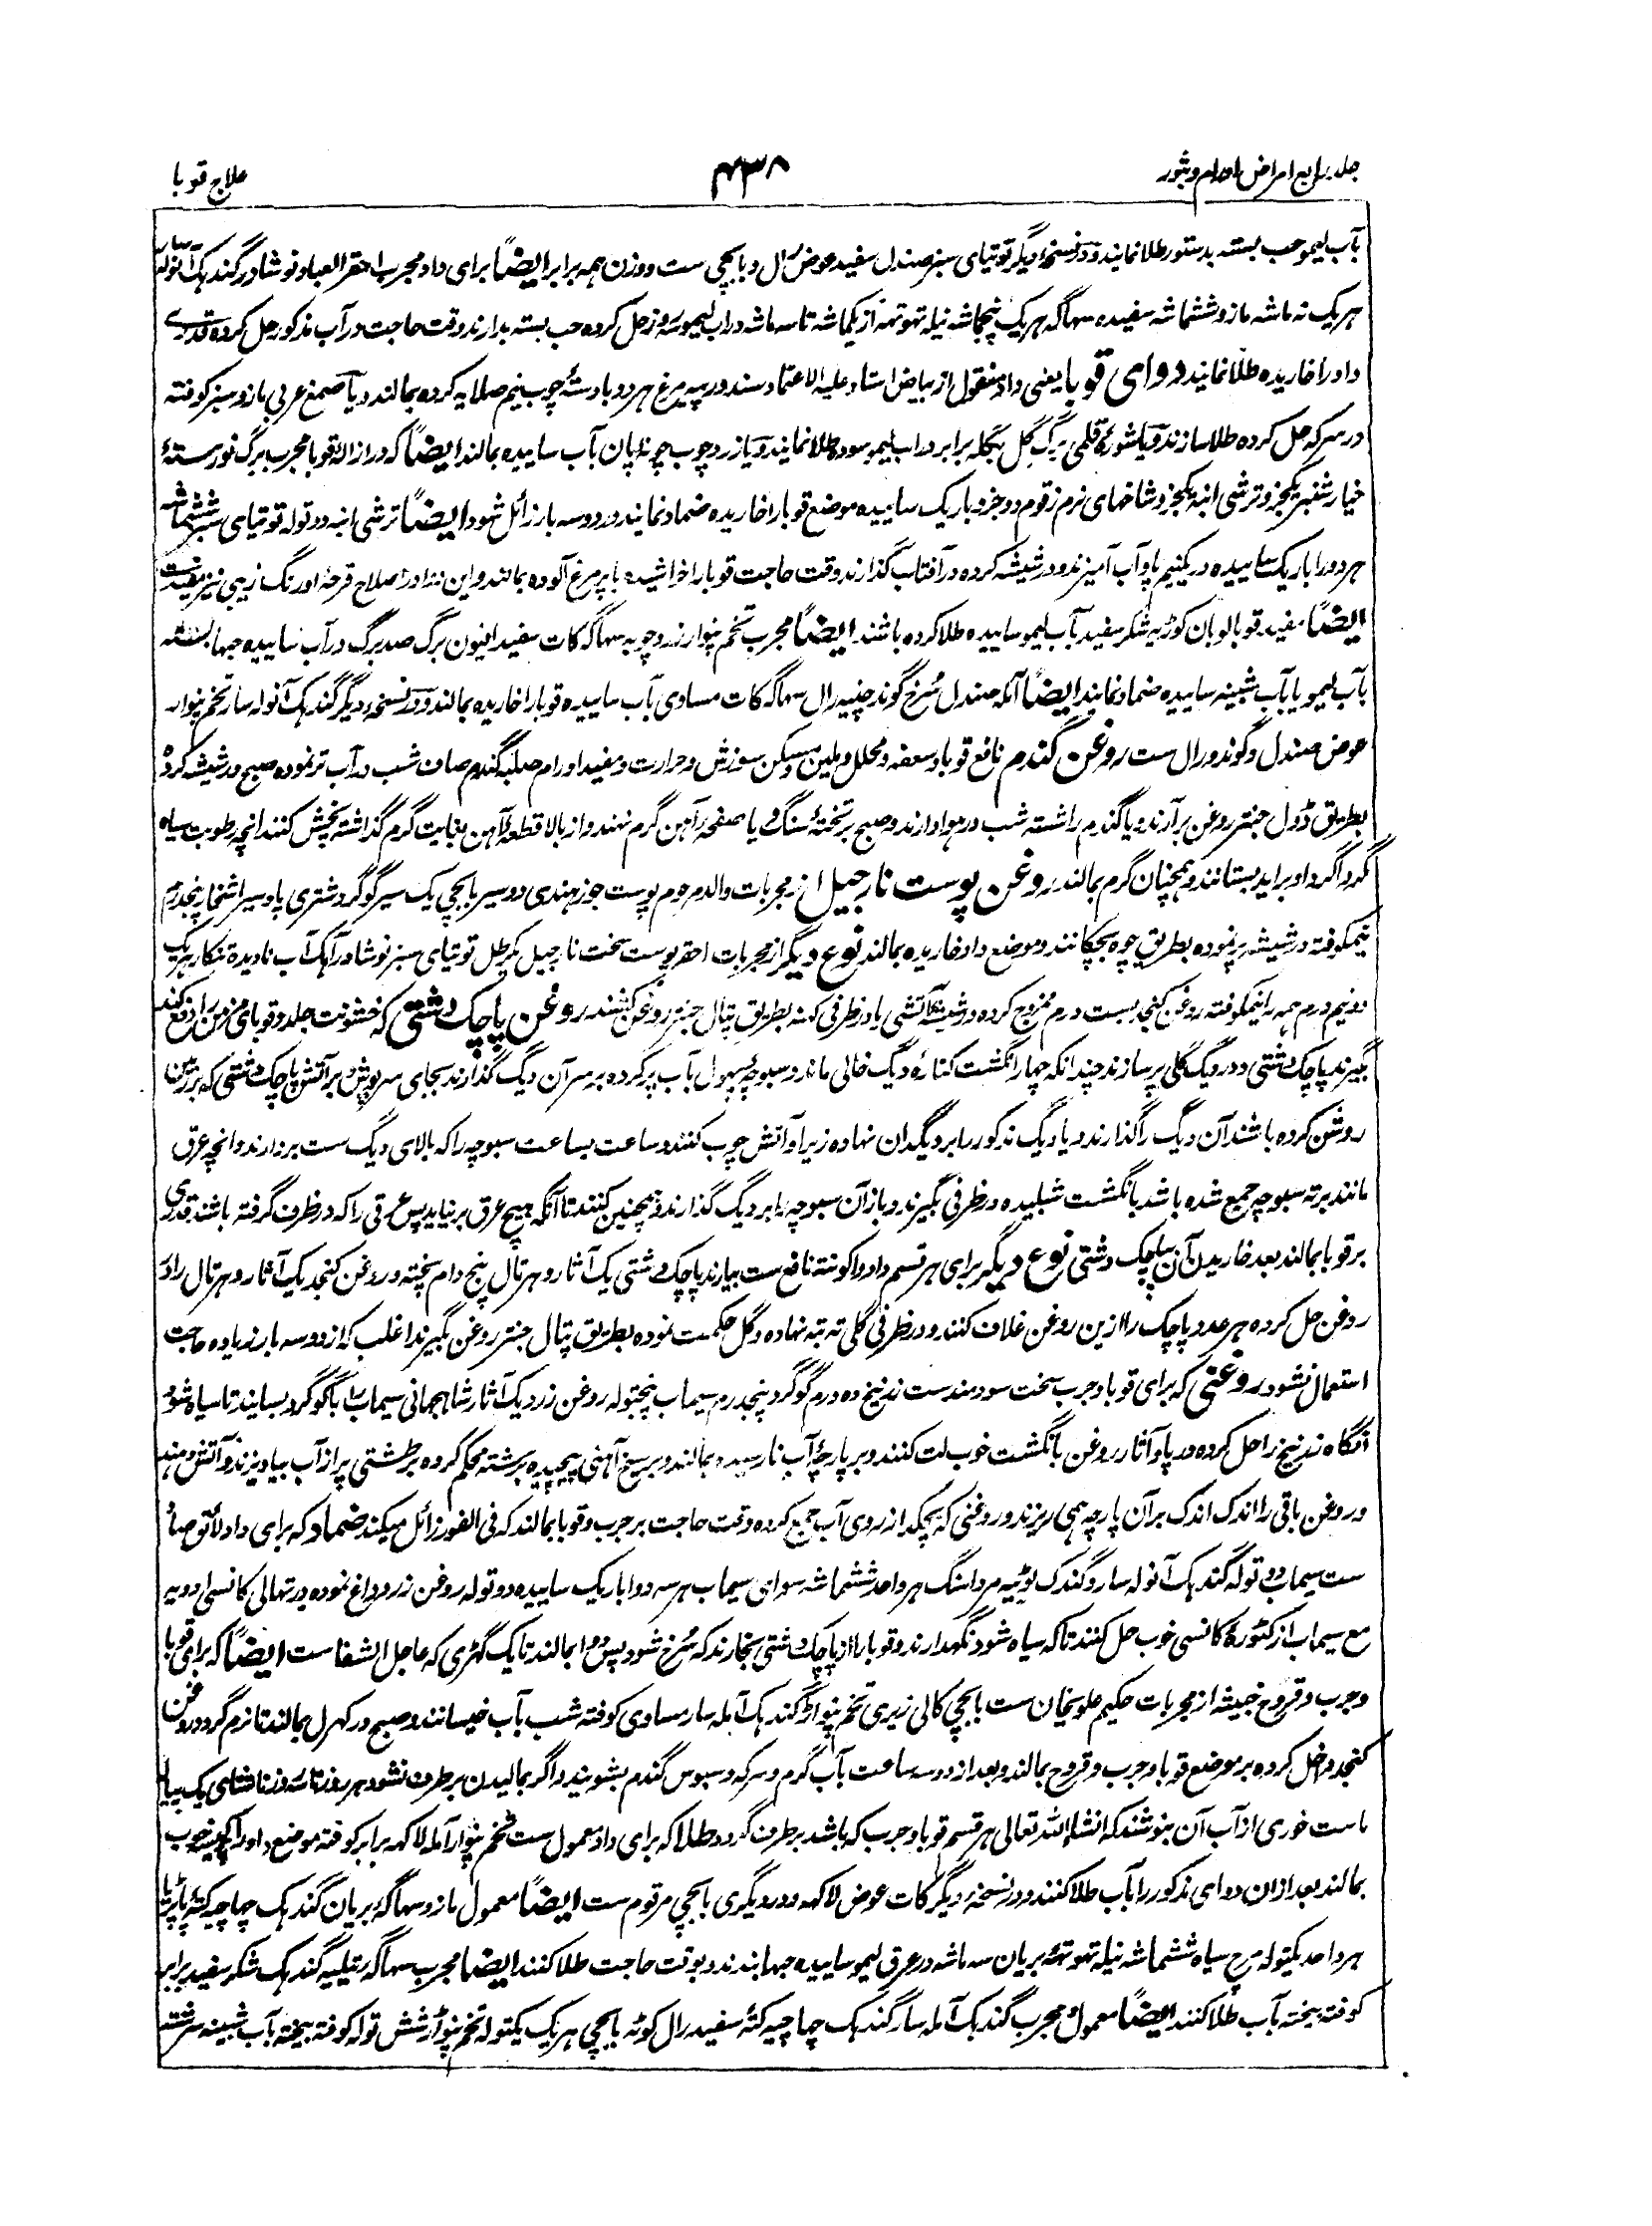 جلد رابع امراض اورام و بثور
۴۳۸
علاج قوبا
بآب لیمو حب بسته بدستور طلا نمایند و در نسخهٔ دیگر توتیای سبز صندل سفید عوض رال و بابچی ست و وزن همه برابر ایضاً برای داد مجرب احقر العباد نوشادر گندهک آنوله سار
هر یک نه ماشه مازو ششماشه سفیده سهاگه هر یک پنجماشه نیله تهوتهه از یکماشه تا سه ماشه در آب لیمو سه روز حل کرده حب بسته بدارند وقت حاجت در آب مذکور حل کرده قدری
داد را خاریده طلا نمایند دوای قوبا یعنی داد منقول از بیاض استاد علیه الاعتماد سندور پیه مرغ هر دو بادستهٔ چوب نیم صلایه کرده بمالند و یا صمغ عربی مازو سبز کوفته
در سرکه حل کرده طلا سازند و یا شورهٔ قلمی برگ گل بنگله برابر در آب لیمو سوده طلا نمایند و یا زرد چوب چونه پان بآب ساییده بمالند ایضاً که در ازالهٔ قوبا مجرب برگ نورستهٔ
خیارشنبر یکجز و ترشی انبه یکجز و شاخهای نرم زقوم دو جز و باریک ساییده موضع قوبا را خاریده ضماد نمایند در دو سه بار زائل شود ایضاً ترشی انبه دو توله توتیای سبز ششماشه
هر دو را باریک ساییده در یکنیم پاو آب آمیزند و در شیشه کرده در آفتاب گذارند وقت حاجت قوبا را خراشیده با پر مرغ آلوده بمالند و این دوا در اصلاح قرحهٔ اورنگ زیبی نیز مفیدست
ایضاً مفید قوبا لوبان کوڑیه شکر سفید بآب لیمو ساییده طلا کرده باشند ایضاً مجرب تخم پنوار زرد چوبه سهاگه کات سفید افیون برگ صدبرگ در آب ساییده حبها بسته
بآب لیمو یا بآب شبینه ساییده ضماد نمایند ایضاً آمله صندل سرخ گوند چنیه رال سهاگه کات مساوی بآب ساییده قوبا را خاریده بمالند و در نسخهٔ دیگر گندهک آنوله سار تخم پنوار
عوض صندل و گوند و رال ست روغن گندم نافع قوبا و سعفه و محلل و ملین و مسکن سوزش و حرارت و مفید اورام صلبه گندم صاف شب در آب تر نموده صبح در شیشه کرده
بطریق ڈول جنتر روغن برآرند و یا گندم را شسته شب در هوا دارند و صبح بر تختهٔ سنگ و یا صفحهٔ آهن گرم نهند و از بالا قطعهٔ آهن بغایت گرم گذاشته بخش کنند انچه رطوبت سیاه
گرداگرد او برآید بستانند و همچنان گرم بمالند روغن پوست نارجیل از مجربات والد مرحوم پوست جوز هندی دو سیر بابچی یک سیر گوگرد شتری پاو سیر اشخار پنجدرم
نیمکوفته در شیشه پر نموده بطریق چوه بچکانند و موضع داد خاریده بمالند نوع دیگر از مجربات احقر پوست سخت نارجیل یکرطل توتیای سبز نوشادر آهک آب نادیده تنکار هر یک
دو نیم درم همه را نیمکوفته روغن کنجد بست درم ممزوج کرده در شیشهٔ آتشی یا در ظرفی کهنه بطریق پتال جنتر روغن کشند روغن پاچک دشتی که خشونت جلد و قوبای مزمن را دفع کند
بگیرند پاچک دشتی و در دیگ گلی پر سازند چندانکه چهار انگشت کنارهٔ دیگ خالی ماند و سبوچهٔ سهول بآب پر کرده بر سر آن دیگ گذارند بجای سرپوش و بر آتش پاچک دشتی که بر زمین
روشن کرده باشند آن دیگ را گذارند و یا دیگ مذکور را بر دیگدان نهاده زیر او آتش چوب کنند و ساعت بساعت سبوچه را که بالای دیگ ست بردارند و انچه عرق
مانند بر ته سبوچه جمع شده باشد بانگشت شبلیده در ظرفی بگیرند و باز آن سبوچه را بر دیگ گذارند و همچنین کنند تا آنکه هیچ عرق برنیاید پس عرقی را که در ظرف گرفته باشند قدری
بر قوبا بمالند بعد خاریدن آن بپاچک دشتی نوع دیگر برای هر قسم داد و اکوته نافع ست بیارند پاچک دشتی یک آثار و هرتال پنج دام پخته و روغن کنجد یک آثار و هرتال را در
روغن حل کرده هر عدد پاچک را ازین روغن غلاف کنند و در ظرفی گلی ته بته نهاده و گل حکمت نموده بطریق پتال جنتر روغن بگیرند اغلب که از دو سه بار زیاده حاجت
استعمال نشود روغنی که برای قوبا و جرب سخت سودمندست زرنیخ ده درم گوگرد پنجدرم سیماب پنجتوله روغن زرد یک آثار شاهجهانی سیماب را با گوگرد بسایند تا سیاه شود
آنگاه زرنیخ را حل کرده در پاو آثار روغن بانگشت خوب لت کنند و بر پارچهٔ آب نارسیده بمالند و بر سیخ آهنی پیچیده برشته محکم کرده بر طشتی پر از آب بیاویزند و آتش دهند
و روغن باقی را اندک اندک بر آن پارچه همی ریزند و روغنی که بچکد از روی آب جمع کرده وقت حاجت بر جرب و قوبا بمالند که فی الفور زائل میکند ضماد که برای داد
ست سیماب دو توله گندهک آنوله سار و گندهک لوٹیه مرداسنگ هر واحد ششماشه سوای سیماب هر سه دوا باریک ساییده دو توله روغن زرد داغ نموده در تهالی کانسی ادویه
مع سیماب از کٹورهٔ کانسی خوب حل کنند تا که سیاه شود نگهدارند و قوبا را از پاچک دشتی بخارند که سرخ شود پس دوا بمالند تا یک گهڑی که عاجل الشفا ست ایضاً که برای قوبا
و جرب و قروح خبیثه از مجربات حکیم علویخان ست بابچی کالی زیری تخم پنواڑ گندهک آمله سار مساوی کوفته شب بآب خیسانند و صبح در کهرل بمالند تا نرم گردد روغن
کنجد داخل کرده بر موضع قوبا و جرب و قروح بمالند و بعد از دو سه ساعت بآب گرم و سرکه و سبوس گندم بشویند و اگر بمالیدن برطرف نشود هر روز تا سه روز ناشتای یک پیاله
ماست خوری از آب آن بنوشند که انشاء الله تعالی هر قسم قوبا و جرب که باشد برطرف گردد طلا که برای داد معمول ست تخم پنوار آمله لاکهه برابر کوفته موضع داد را خوب
بمالند بعد ازان دوای مذکور را بآب طلا کنند و در نسخهٔ دیگر کات عوض لاکهه و در دیگری بابچی مرقوم ست ایضاً معمول مازو سهاگه بریان گندهک چهاچیه کتهه پاپڑیا
هر واحد یکتوله مرچ سیاه ششماشه نیله تهوتهه بریان سه ماشه در عرق لیمو ساییده حبها بندند و بوقت حاجت طلا کنند ایضاً مجرب سهاگه تیلیه گندهک شکر سفید برابر
کوفته بیخته بآب طلا کنند ایضاً معمول و مجرب گندهک آمله سار گندهک چهاچیه کتهه سفید رال کوٹه بابچی هر یک یکتوله تخم پنوڑ شش توله کوفته بیخته بآب شبینه سرشته